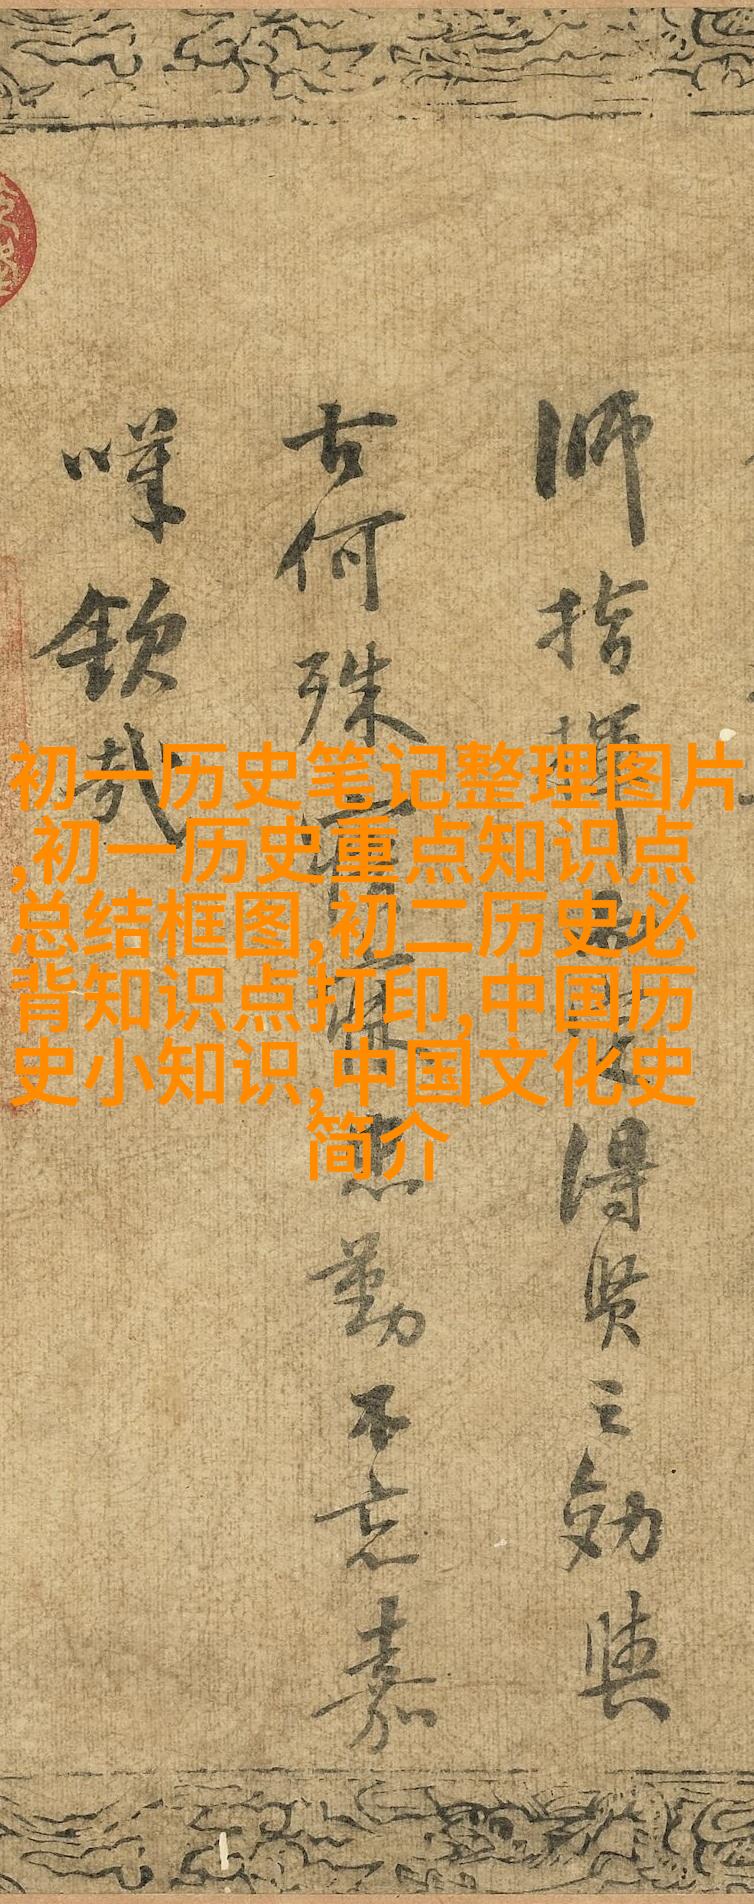 師指揮得賢之効與
古何殊寤寐忠勤不忘嘉
嘆欽哉
初一历史笔记整理图片
,初一历史重点知识点
总结框图,初二历史必
背知识点打印,中国历
史小知识,中国文化史
简介